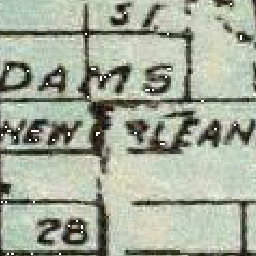 ST.
DAMS
NEW ORLEAN
28